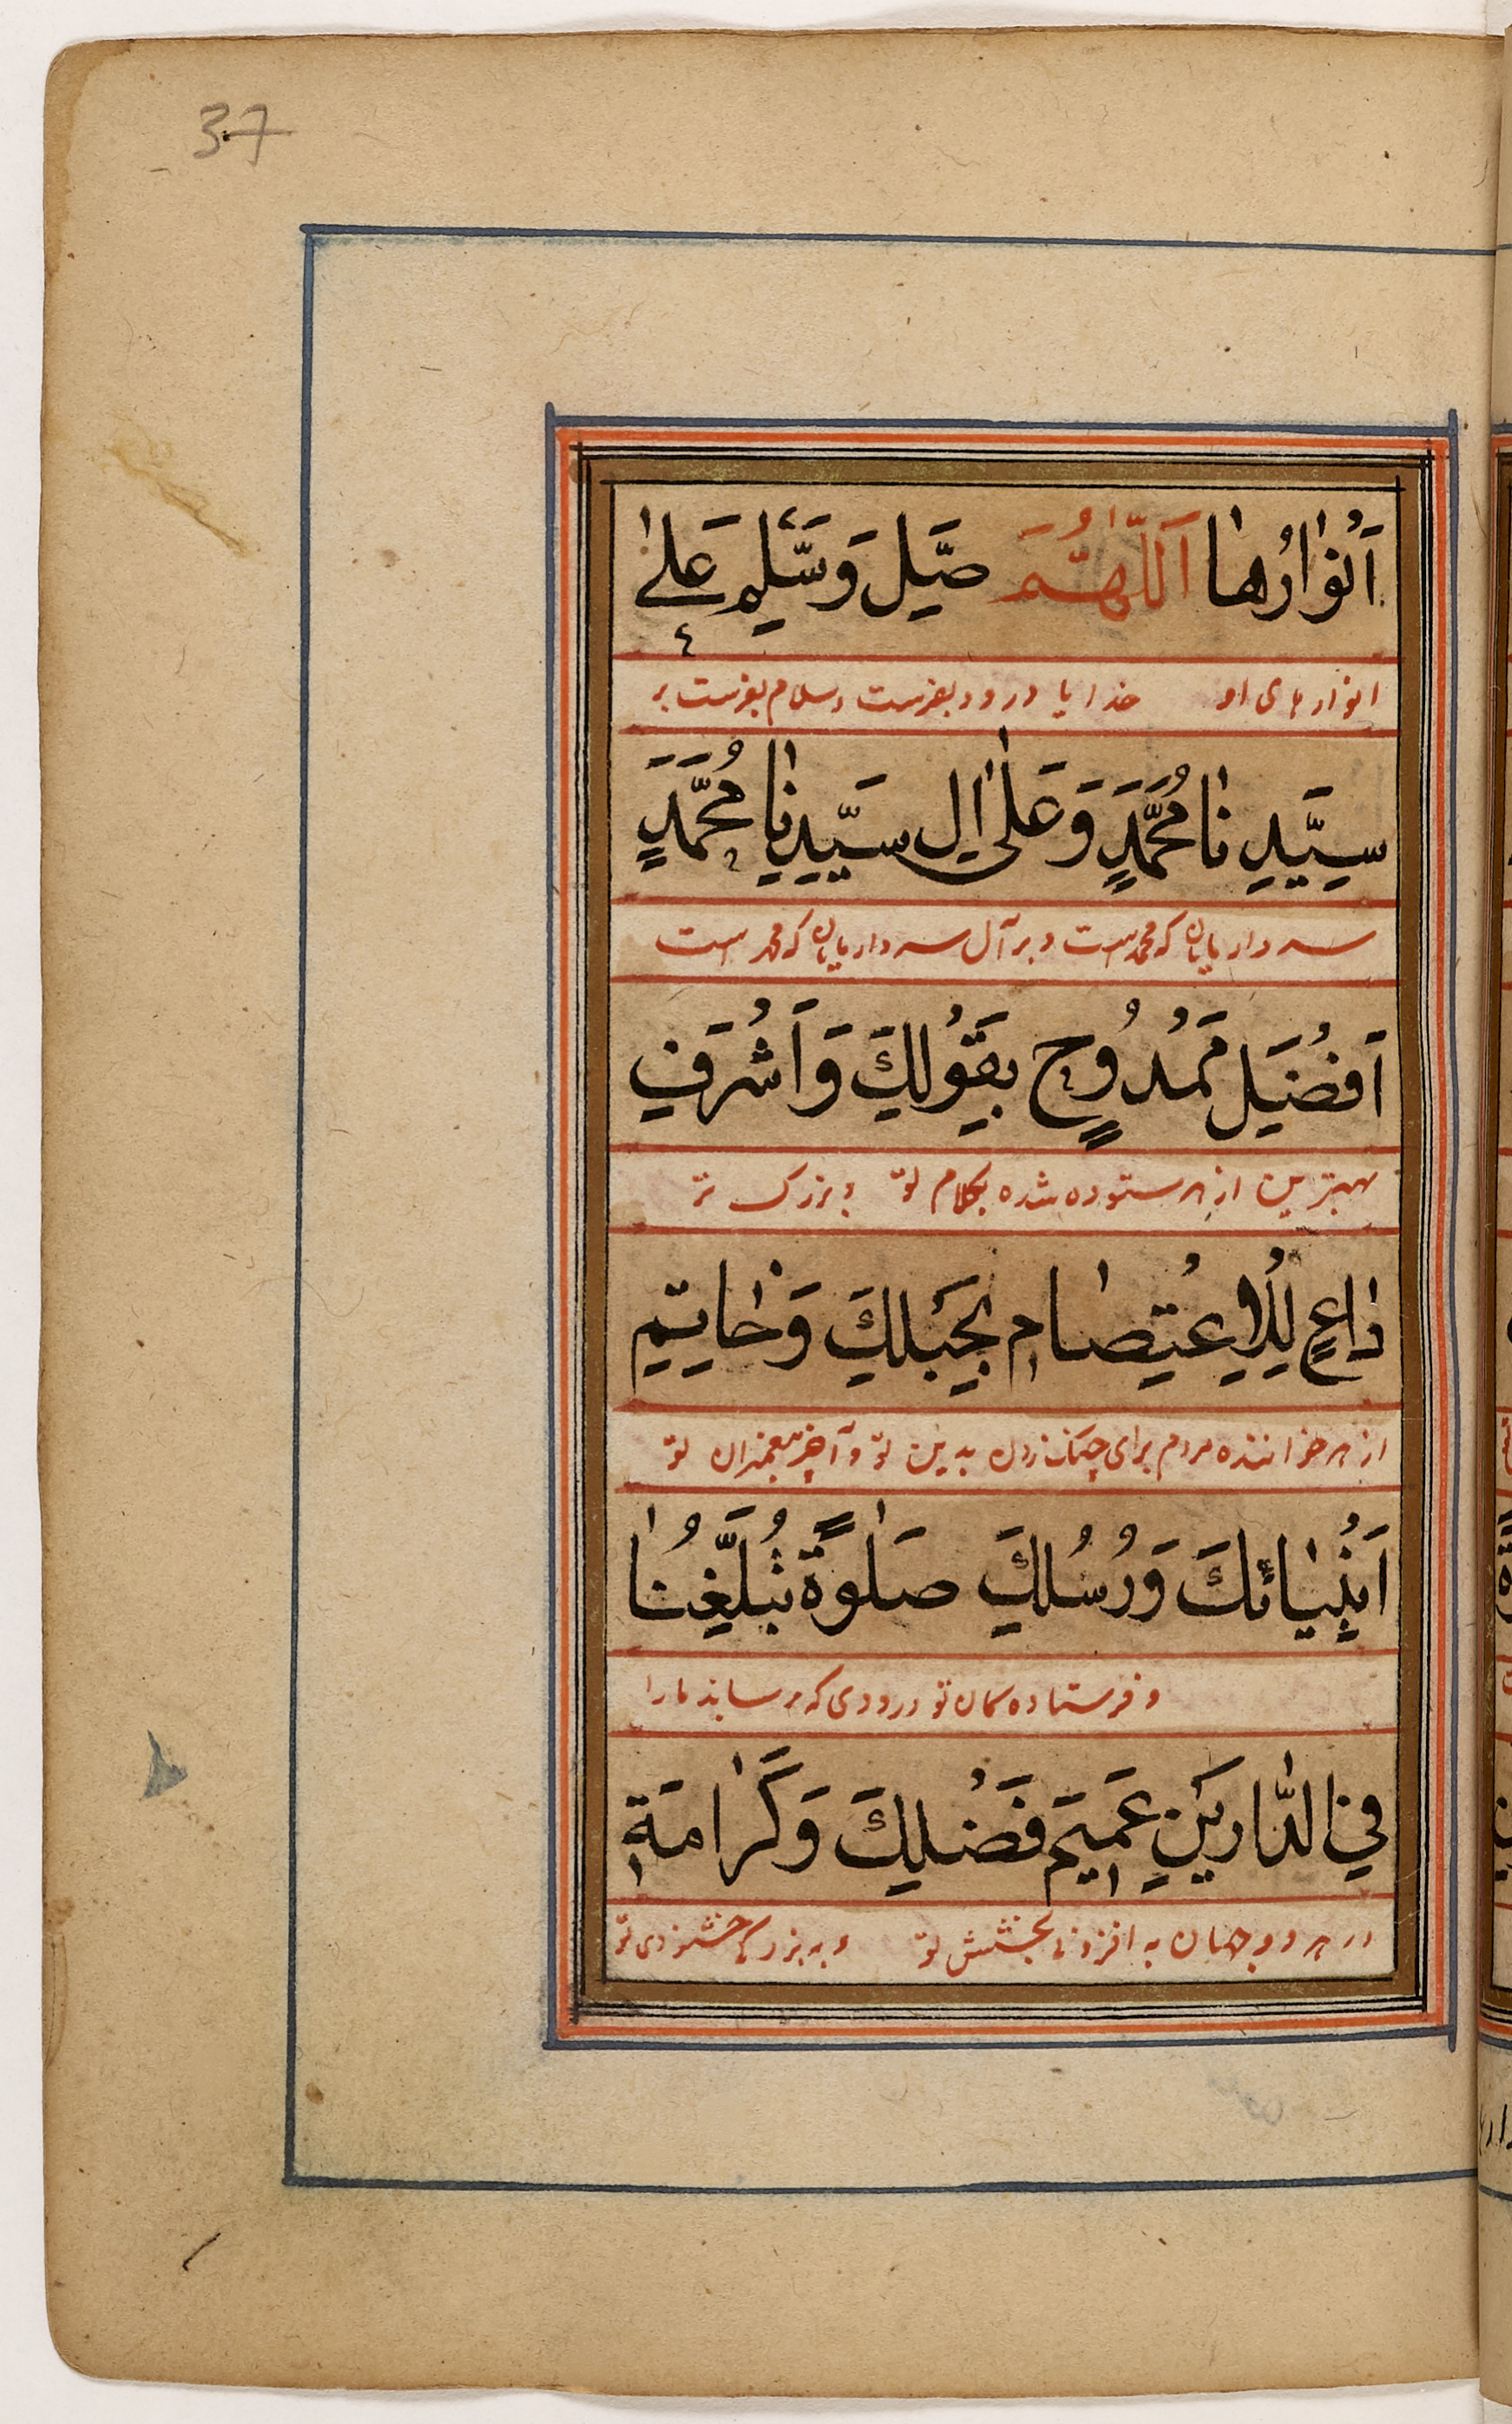 37
اَنْوٰارُهٰا اَللّٰهُمَّ صَلِّ وَسَلِّمْ عَلىٰ
انوارهای او خدایا درود بفرست و سلام بفرست بر
سَيِّدِنٰا مُحَمَّدٍ وَعَلىٰ اٰلِ سَيِّدِنٰا مُحَمَّدٍ
سردار یایان که محمد است و بر آل سردار یایان که محمد است
اَفْضَلِ مَمْدُوْحٍ بِقَوْلِكَ وَاَشْرَفِ
بهترین از هر ستوده شده بکلام تو و بزرک تر
دٰاعٍ لِلْاِعْتِصٰامِ بِحَبْلِكَ وَخٰاتِمِ
از هر خواننده مردم برای چنک زدن بدین تو و آخر پیغمبران تو
اَنْبِيٰائِكَ وَرُسُلِكَ صَلٰوةً تُبَلِّغُنٰا
و فرستاده کان تو درودی که میرساند مارا
فِي الدّٰارَيْنِ عَمِيْمَ فَضْلِكَ وَكَرٰامَةِ
در هر دو جهان به افزونی بخشش تو و به بزرکی خشنودی تو